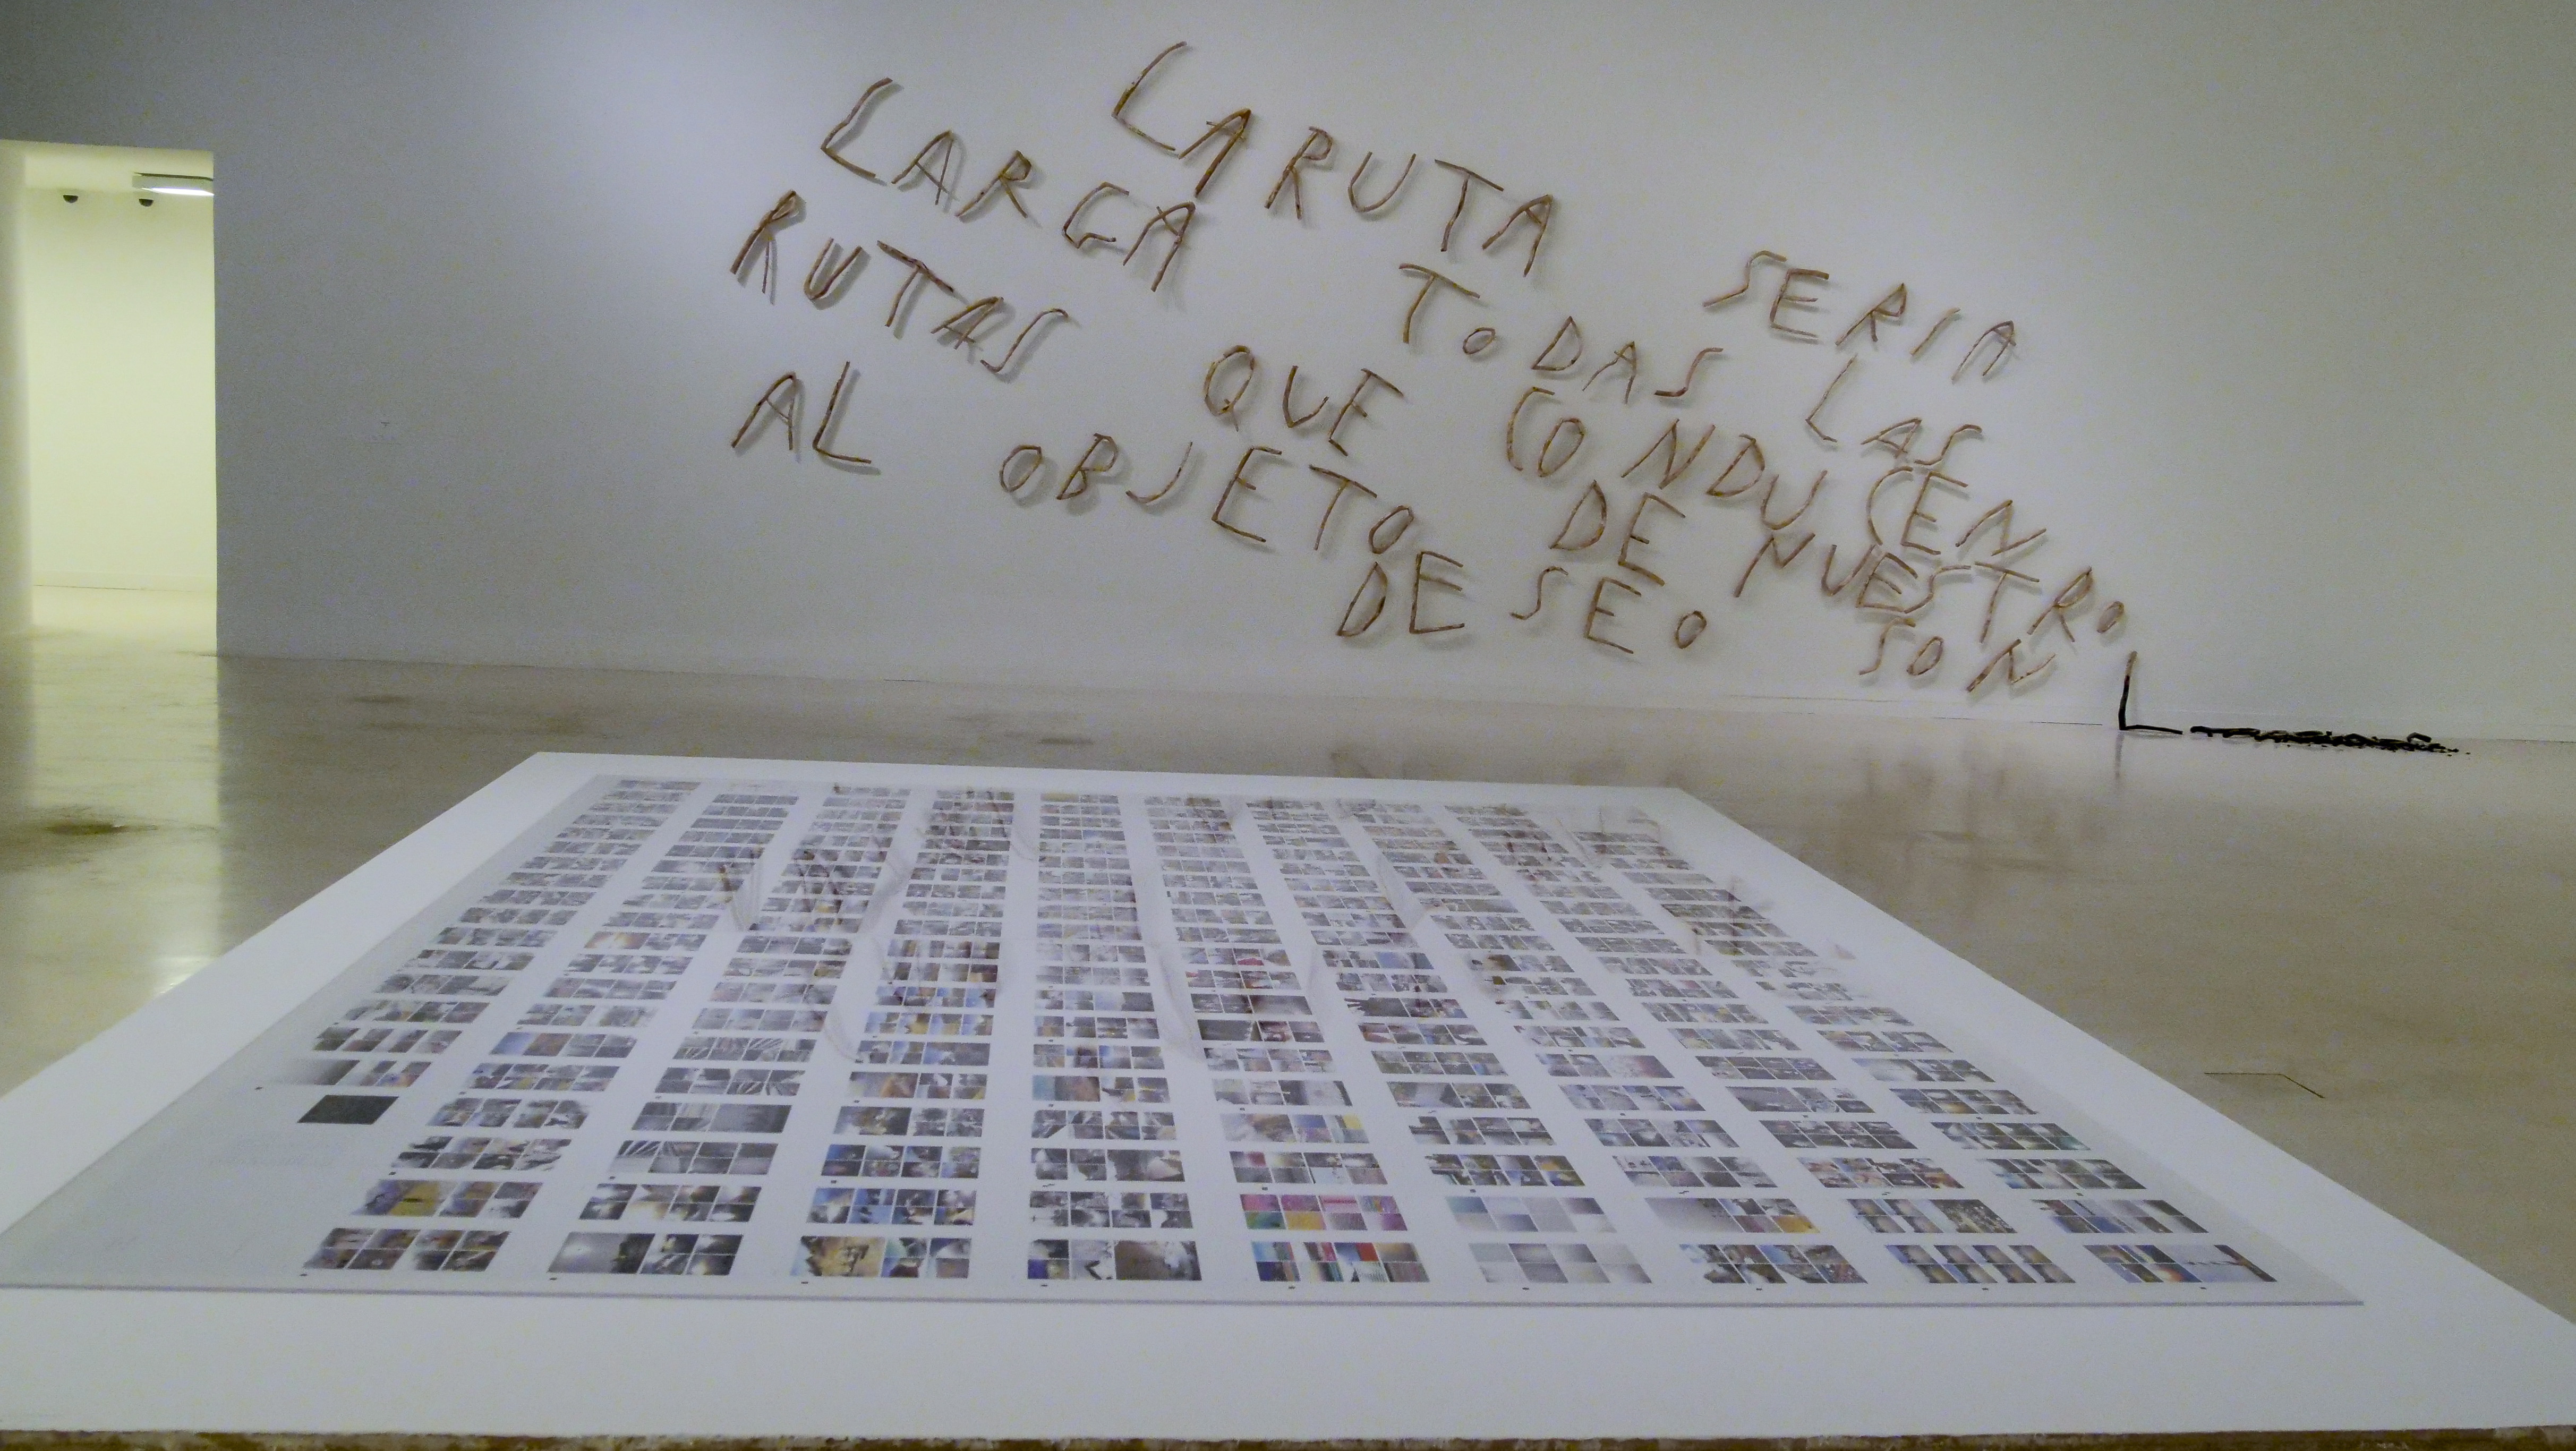 LA RUTA SERIA
LARGA TODAS LAS
RUTAS QUE CONDUCEN
AL OBJETO DE NUESTRO
DESEO SON
L